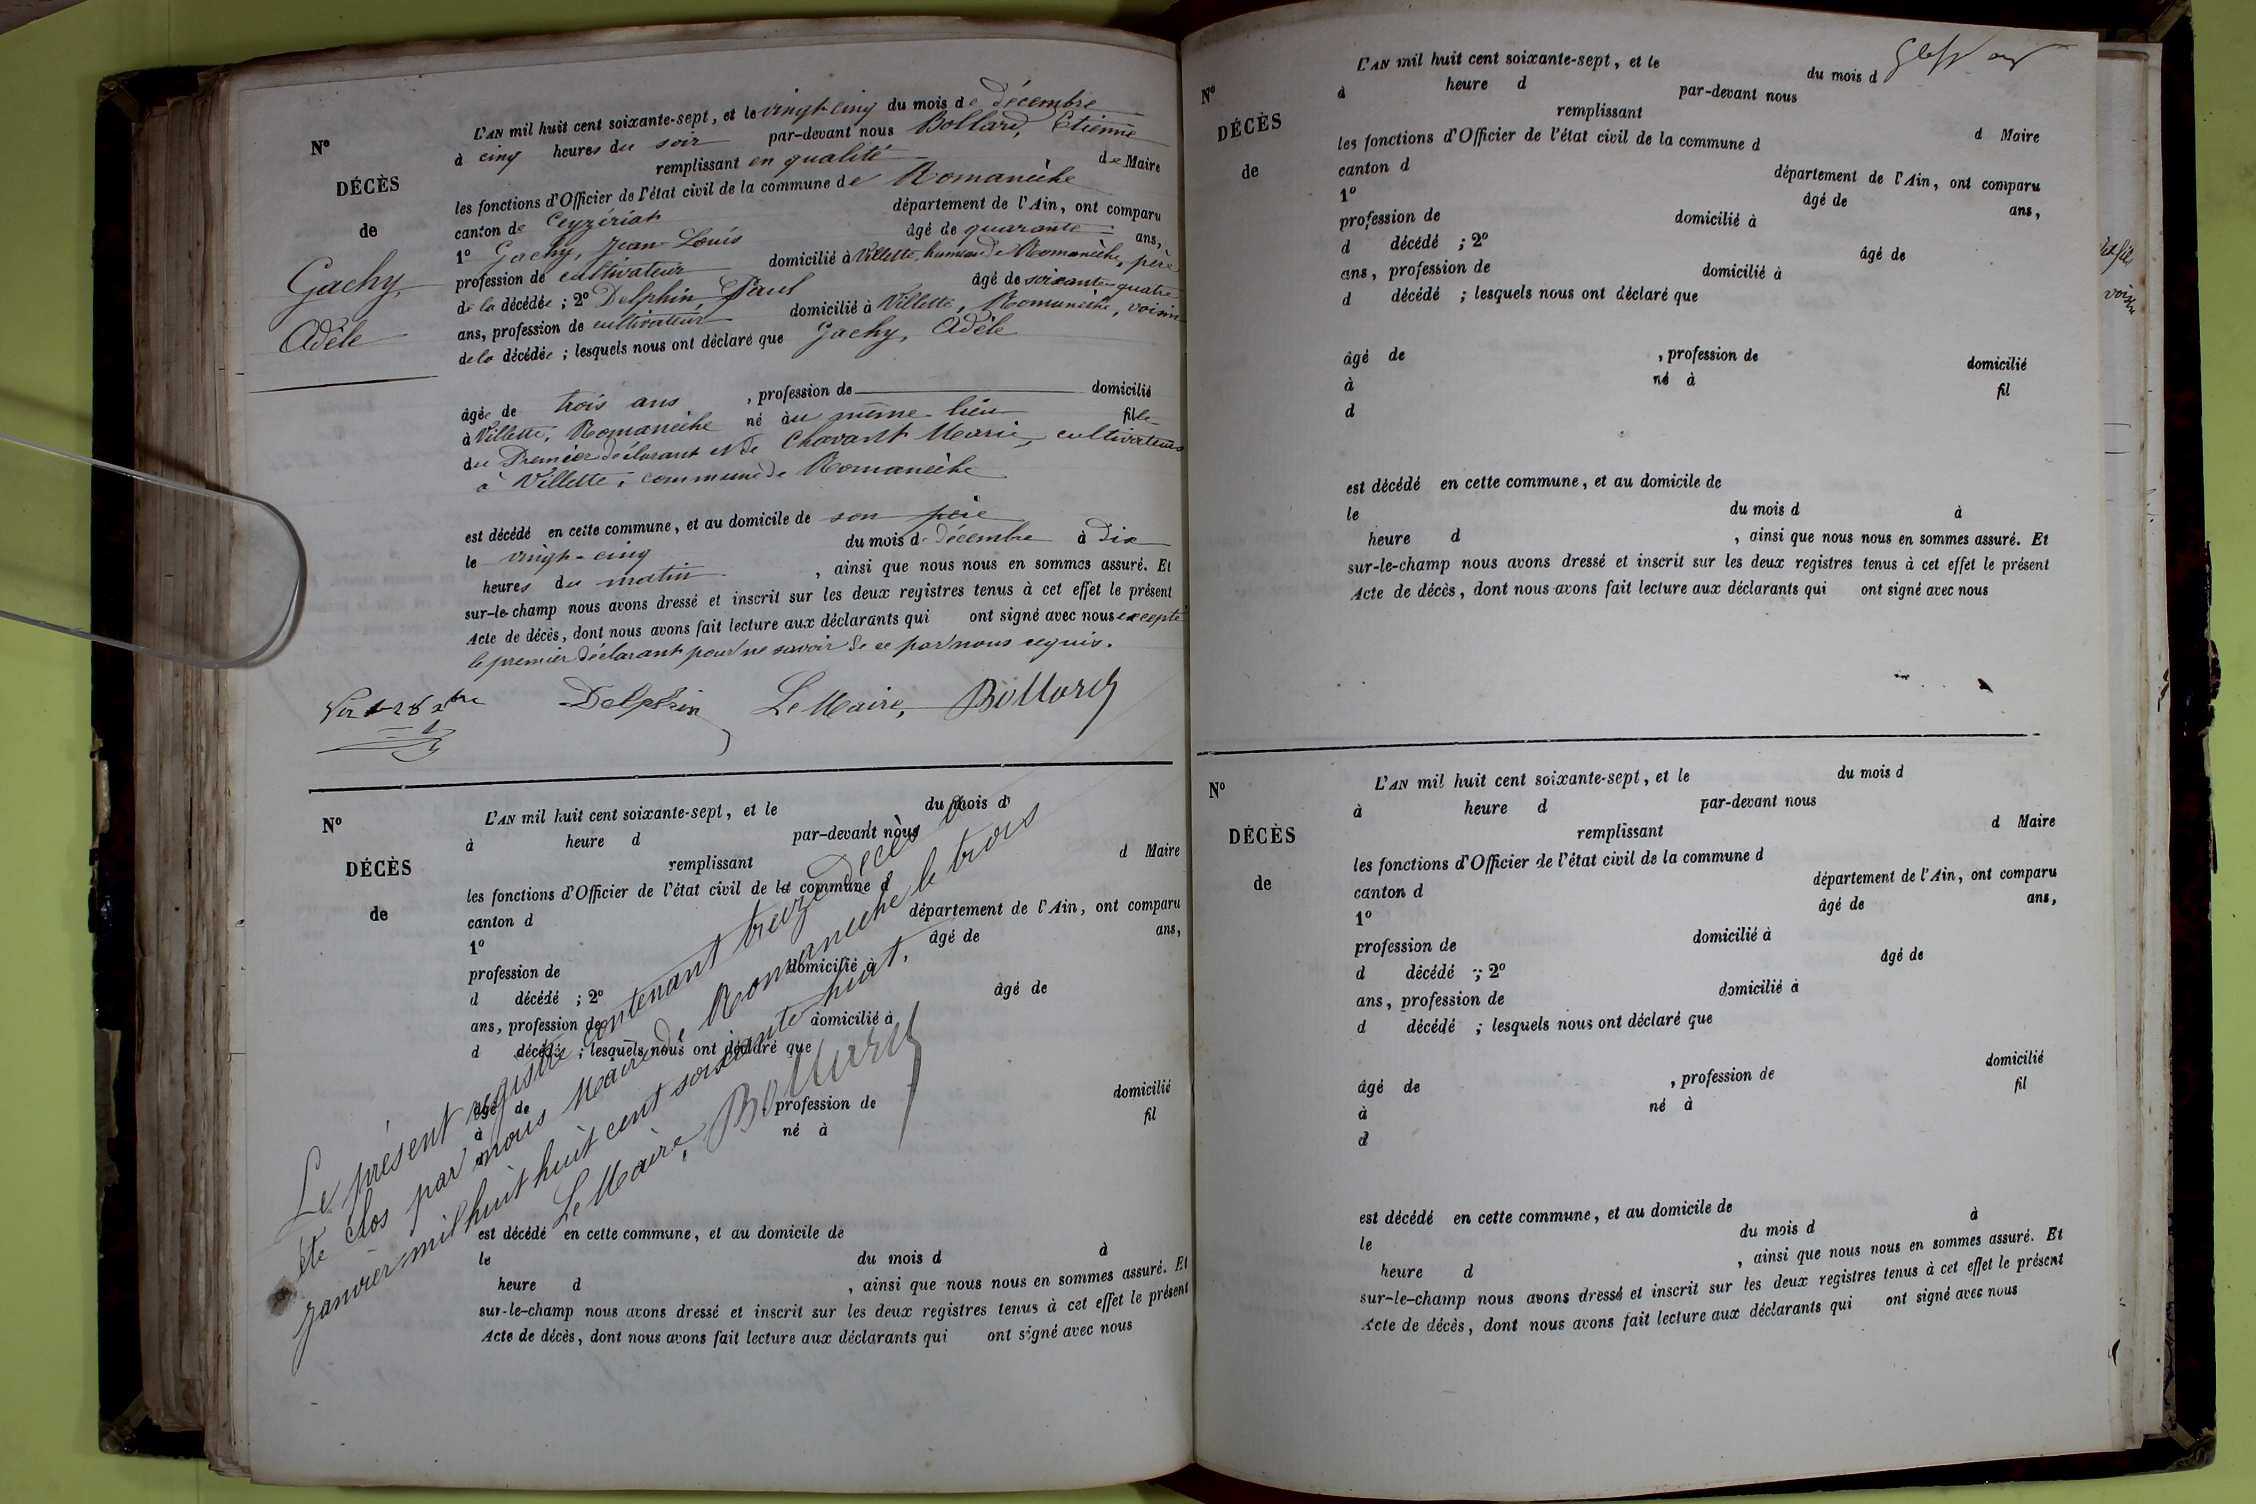 N°
DÉCÈS
de
Gachy,
Adèle
L'AN mil huit cent soixante-sept, et le vingt-cinq du mois de décembre
à cinq heures du soir par-devant nous Bollard, Etienne
remplissant en qualité de Maire
les fonctions d'Officier de l'état civil de la commune de Romanèche
canton de Ceyzériat département de l'Ain, ont comparu
1° Gachy, Jean-Louis âgé de quarante ans,
profession de cultivateur domicilié à Villette, hameau de Romanèche, père
de la décédée ; 2° Delphin, Paul âgé de soixante-quatre
ans, profession de cultivateur domicilié à Villette, Romanèche, voisin
de la décédée ; lesquels nous ont déclaré que Gachy, Adèle
âgée de trois ans , profession de domicilié
à Villette, Romanèche né au même lieu fille
du Premier déclarant et de Chavant Marie, cultivateurs
à Villette, commune de Romanèche
est décédé en cette commune, et au domicile de son père
le vingt-cinq du mois de décembre à dix
heures du matin , ainsi que nous nous en sommes assuré. Et
sur-le-champ nous avons dressé et inscrit sur les deux registres tenus à cet effet le présent
Acte de décès, dont nous avons fait lecture aux déclarants qui ont signé avec nous excepté
le premier déclarant pour ne savoir de ce par nous requis.
Delphin Le Maire, Bollard
N°
DÉCÈS
de
L'AN mil huit cent soixante-sept, et le du mois d
à heure d par-devant nous
remplissant d Maire
les fonctions d'Officier de l'état civil de la commune d
canton d département de l'Ain, ont comparu
1° âgé de ans,
profession de domicilié à
d décédé ; 2° âgé de
ans, profession de domicilié à
d décédé ; lesquels nous ont déclaré que
âgé de , profession de domicilié
à né à fil
d
Le présent registre contenant treize décès a
été clos par nous Maire de Romanèche le trois
janvier mil huit cent soixante huit.
Le Maire, Bollard
est décédé en cette commune, et au domicile de
le du mois d à
heure d , ainsi que nous nous en sommes assuré. Et
sur-le-champ nous avons dressé et inscrit sur les deux registres tenus à cet effet le présent
Acte de décès, dont nous avons fait lecture aux déclarants qui ont signé avec nous
N°
DÉCÈS
de
L'AN mil huit cent soixante-sept, et le du mois d
à heure d par-devant nous
remplissant d Maire
les fonctions d'Officier de l'état civil de la commune d
canton d département de l'Ain, ont comparu
1° âgé de ans,
profession de domicilié à
d décédé ; 2° âgé de
ans, profession de domicilié à
d décédé ; lesquels nous ont déclaré que
âgé de , profession de domicilié
à né à fil
d
est décédé en cette commune, et au domicile de
le du mois d à
heure d , ainsi que nous nous en sommes assuré. Et
sur-le-champ nous avons dressé et inscrit sur les deux registres tenus à cet effet le présent
Acte de décès, dont nous avons fait lecture aux déclarants qui ont signé avec nous
N°
DÉCÈS
de
L'AN mil huit cent soixante-sept, et le du mois d
à heure d par-devant nous
remplissant d Maire
les fonctions d'Officier de l'état civil de la commune d
canton d département de l'Ain, ont comparu
1° âgé de ans,
profession de domicilié à
d décédé ; 2° âgé de
ans, profession de domicilié à
d décédé ; lesquels nous ont déclaré que
âgé de , profession de domicilié
à né à fil
d
est décédé en cette commune, et au domicile de
le du mois d à
heure d , ainsi que nous nous en sommes assuré. Et
sur-le-champ nous avons dressé et inscrit sur les deux registres tenus à cet effet le présent
Acte de décès, dont nous avons fait lecture aux déclarants qui ont signé avec nous
voisin